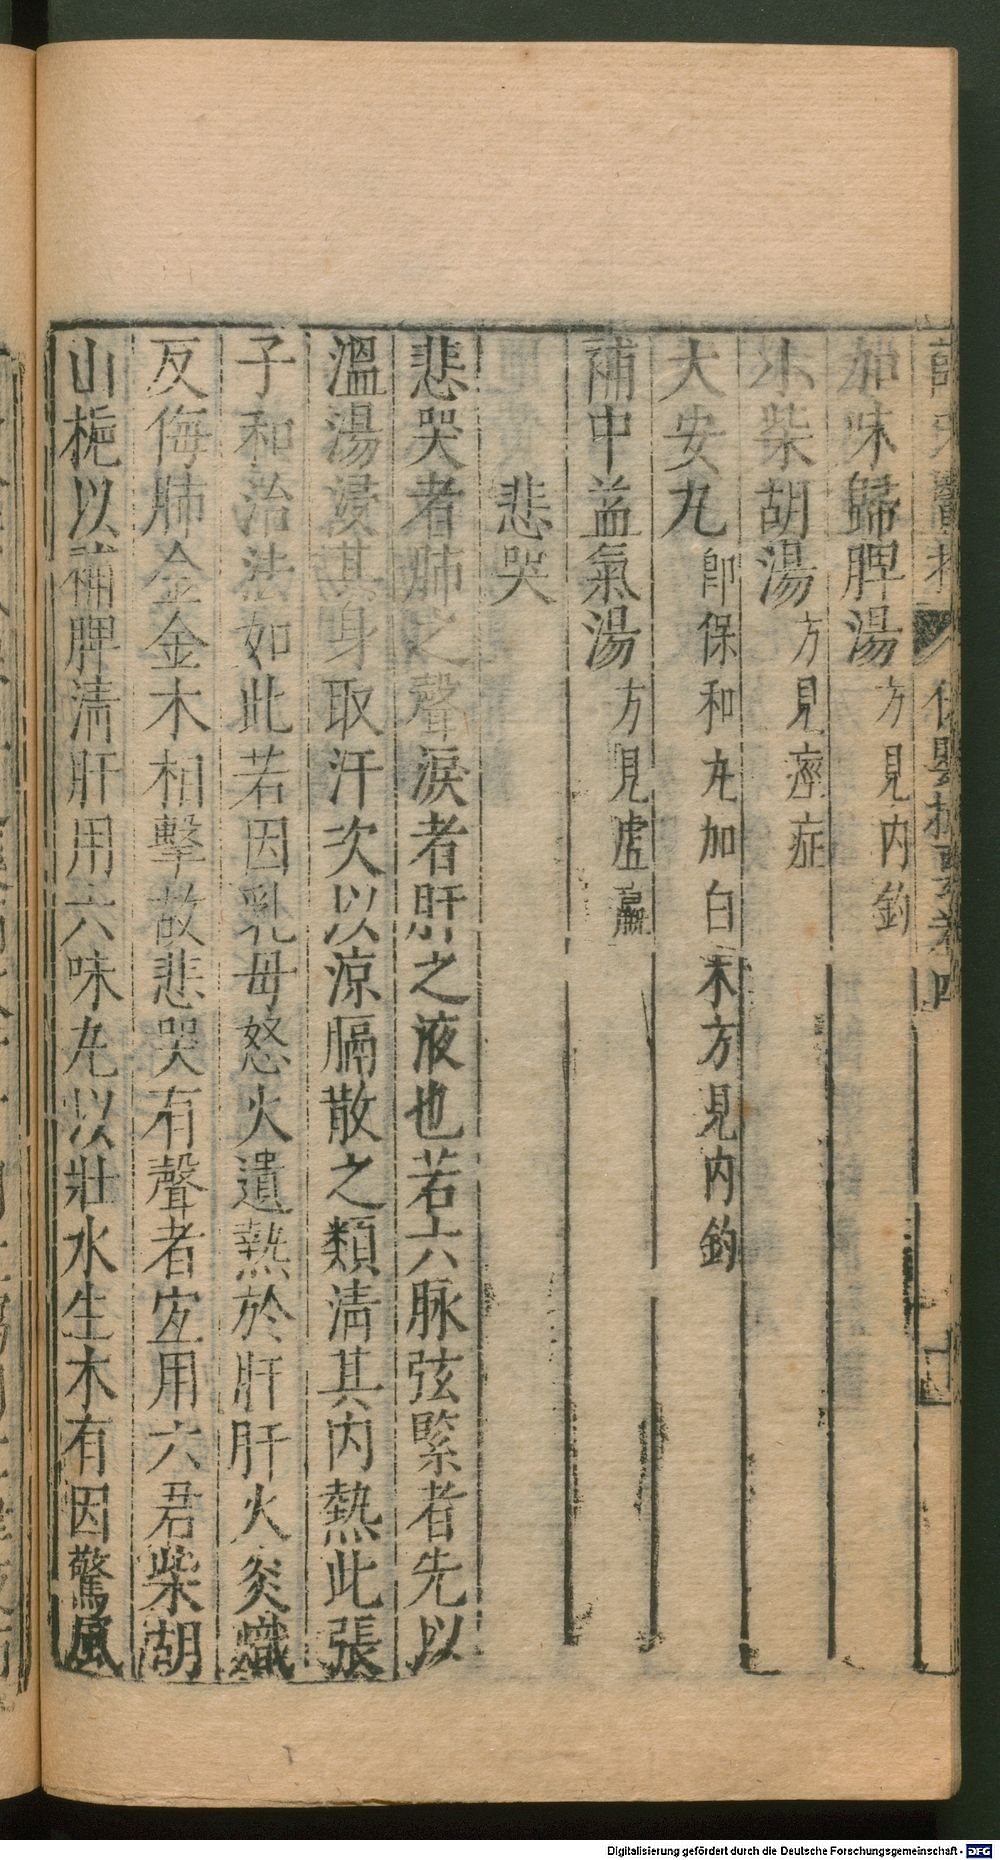 加味歸脾湯方見內釣
小柴胡湯方見痙症
大安丸卽保和丸加白朮方見內釣
補中益氣湯方見虛羸
悲哭
悲哭者肺之聲淚者肝之液也若六脉弦緊者先以
溫湯浸其身取汗次以凉膈散之類淸其內熱此張
子和治法如此若因乳母怒火遺熱於肝肝火炎熾
反侮肺金金木相擊故悲哭有聲者宜用六君柴胡
山梔以補脾淸肝用六味丸以壯水生木有因驚風
Digitalisierung gefördert durch die Deutsche Forschungsgemeinschaft - DFG